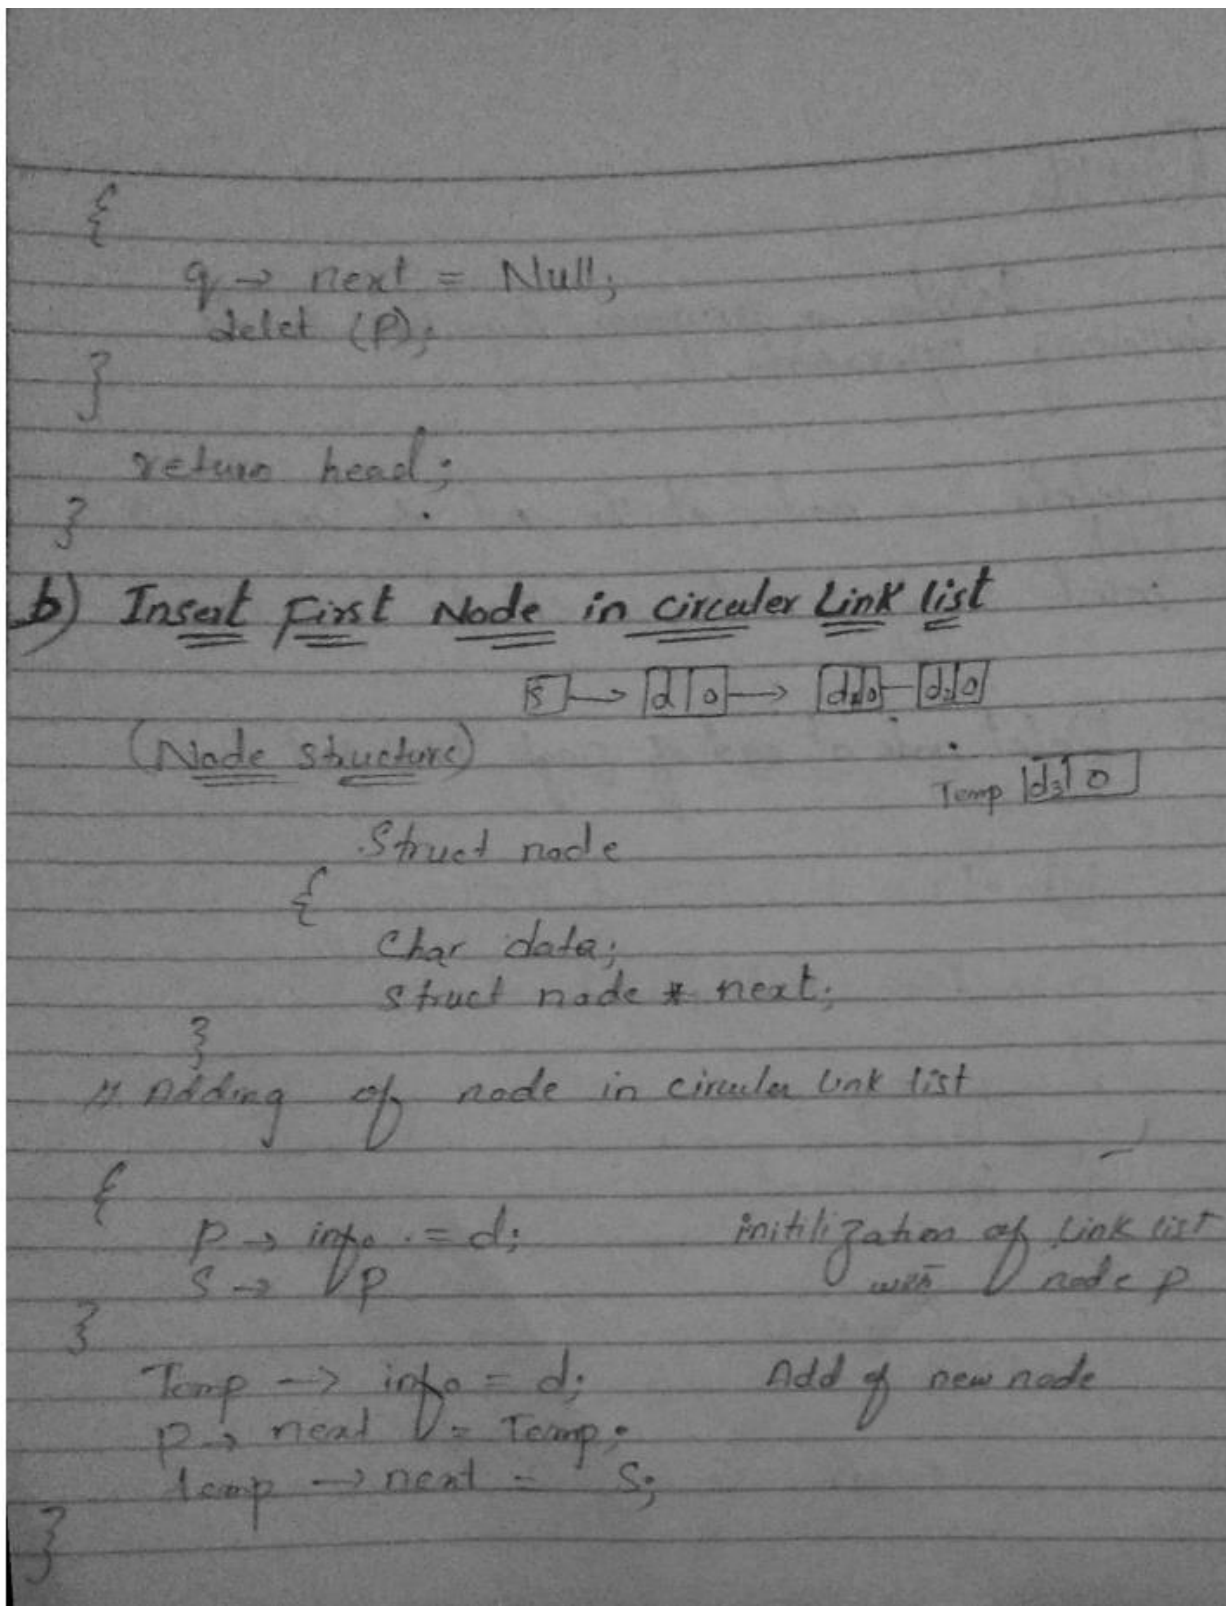 {
q → next = Null;
delet (P);
}
return head;
}
b) Insert First Node in circuler Link list
S → d 0 → d1 0 d2 0
(Node structure)
Temp d3 0
Struct node
{
Char data;
struct node * next;
}
// Adding of node in circuler link list
{
P → info . = d; initilization of Link list
S → P with node P
}
Temp → info = d; Add of new node
P → next = Temp;
temp → next = S;
}